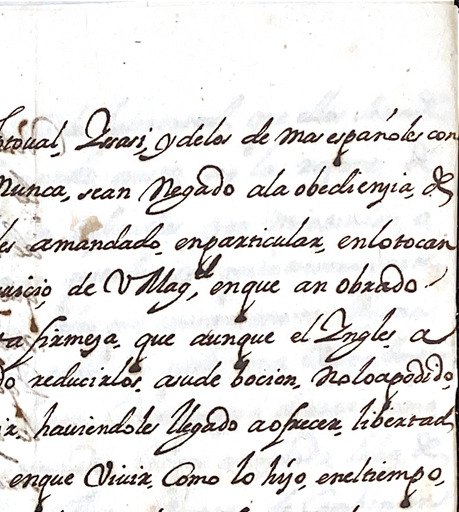 toual, Yrasi, y delos de mas españoles con
Nunca, sean Negado ala obediençia, de
les amandado, enparticular, enlotocan
uicio de VMag.d, enque an obrado
ta firmeza, que aunque el Yngles a
do reducirlos, asude boçion, Noloapodido,
ir, hauiendoles llegado aofrecer, libertad
enque Viuir, Como lo hijo, eneltiempo,